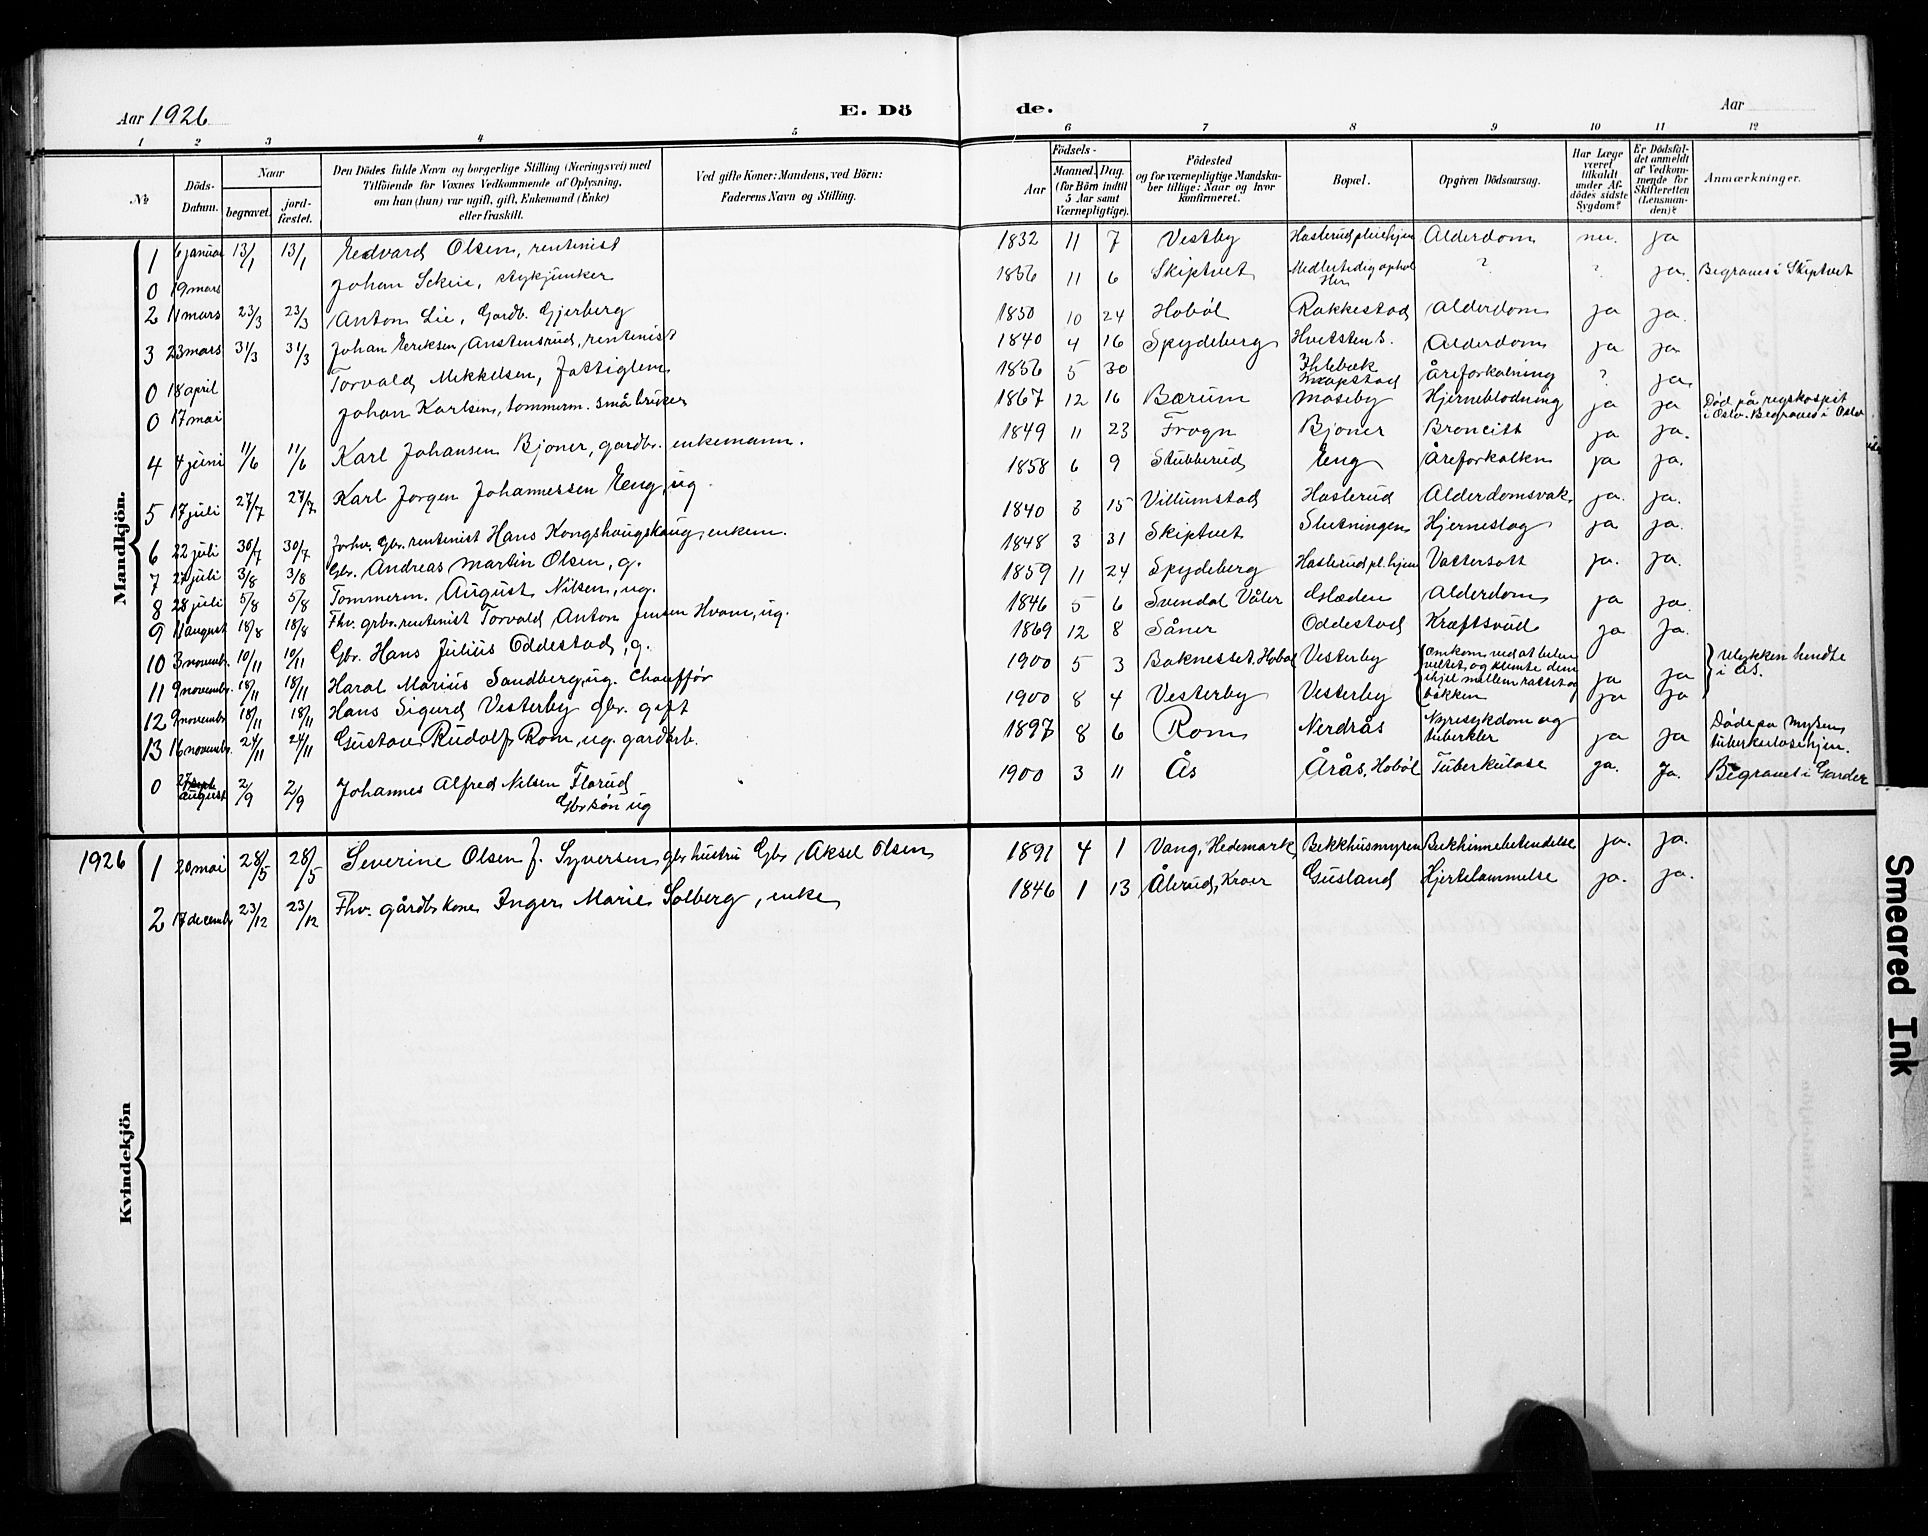 Aar 1926 E. Dö de. Aar
1 2 3 4 5 6 7 8 9 10 11 12
No
Döds-Datum.
Naar
begravet. jordfæstet.
Den Dödes fulde Navn og borgerlige Stilling (Næringsvei) med
Tilföiende for Voxnes Vedkommende af Oplysning,
om han (hun) var ugift, gift, Enkemand (Enke)
eller fraskilt.
Ved gifte Koner: Mandens, ved Börn:
Faderens Navn og Stilling.
Födsels-
Aar Maaned. Dag.
(for Börn indtil
5 Aar samt
Værnepligtige).
Födested
og for værnepligtige Mandska-
ber tillige: Naar og hvor
konfirmeret.
Bopæl.
Opgiven Dödsaarsag.
Har Læge
været
tilkaldt
under Af-
dödes sidste
Sygdom?
Er Dödsfal-
det anmeldt
af Vedkom-
mende for
Skifteretten
(Lensman-
den)?
Anmærkninger.
Mandkjön.
1 6 januar 13/1 13/1 Edvard Olsen, rentenist 1832 11 7 Vestby Hasterud pleiehjem Alderdom nei. ja
0 19 mars Johan Skiie, stykjunker 1856 11 6 Skiptvet ? ? ja. Begraves i Skiptvet
2 11 mars 23/3 23/3 Anton Lie, Gardb. Gjerberg 1850 10 24 Hobøl Rakkestad Alderdom ja ja.
3 23 mars 31/3 31/3 Johan Eriksen Anstensrud, rentenist 1840 4 16 Spydeberg Hvitsten S. Alderdom ja ja
0 18 april Torvald Mikkelsen, Fattiglem 1856 5 30 Ihlebæk Knapstad Åreforkalning ? ja
0 17 mai Johan Karlsen, tømmerm. småbruker 1867 12 16 Bærum Moseby Hjerneblødning ja ja Død på rigshospit i Oslo. Begraves i Oslo
4 4 juni 11/6 11/6 Karl Johansen Bjoner, gardbr. enkemann. 1849 11 23 Frogn Bjoner Broncitt ja ja.
5 17 juli 27/7 27/7 Karl Jorgen Johannessen Eng, ug. 1858 6 9 Stubberud Eng Åreforkalkn ja ja.
6 22 juli 30/7 30/7 Forhv. Gbr. rentenist Hans Kongshaugskaug, enkem. 1840 3 15 Villumstad Hasterud Alderdomsvak. ja. ja.
7 27 juli 3/8 3/8 Gbr. Andreas Martin Olsen, g. 1848 3 31 Skiptvet Slutningen Hjerneslag ja ja.
8 28 juli 5/8 5/8 Tømmerm. August Nilsen, ug. 1859 11 24 Spydeberg Hasterud pl.hjem Vattersott ja. ja.
9 11 august 18/8 18/8 Fhv. grbr. rentenist Torvald Anton Jensen Hvam, ug. 1846 5 6 Svendal Våler Alderdom ja ja.
10 3 novembr. 10/11 10/11 Gbr. Hans Julius Oddestad, g. 1869 12 8 Såner Oddestad Kræftsvud ja ja.
11 9 novembr. 18/11 18/11 Haral Marius Sandberg, ug. Chauffør 1900 5 3 Baknesset, Hobøl Vesterby omkom ved at bilen veltet, og klemte dem ihjel mellem rattet og bakken ja ja Ulykken hendte i Ås.
12 9 novembr 18/11 18/11 Hans Sigurd Vesterby gbr. gift 1900 8 4 Vesterby Vesterby ja ja
13 16 novembr. 24/11 24/11 Gustav Rudolf Rom, ug. gardarb. 1897 8 6 Rom Nerdrås Nyresykdom og tuberkler ja ja Døde på Mysen tuberkulosehjem.
0 august 2/9 2/9 Johannes Alfred Nilsen Florud 1900 3 11 Ås Årås, Hobøl Tuberkulose ja. Ja. Begravet i Garder
Gbr søn ug
Kvindekjön
1926 1 20 mai 28/5 28/5 Severine Olsen f. Syversen gbr hustru Gbr Aksel Olsen 1891 4 1 Vang, Hedemark Bekkhusmyren Bekhinnebetendelse ja. ja.
2 17 decembr 23/12 23/12 Fhv. gårdbr kone Inger Marie Solberg, enke 1846 1 13 Ålerud, Kroer Gusland Hjertelammelse ja. ja.
Smeared Ink